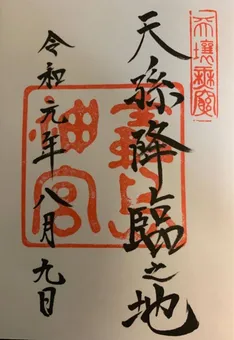 天壤無窮
天孫降臨之地
霧島
神宮
令和元年八月九日